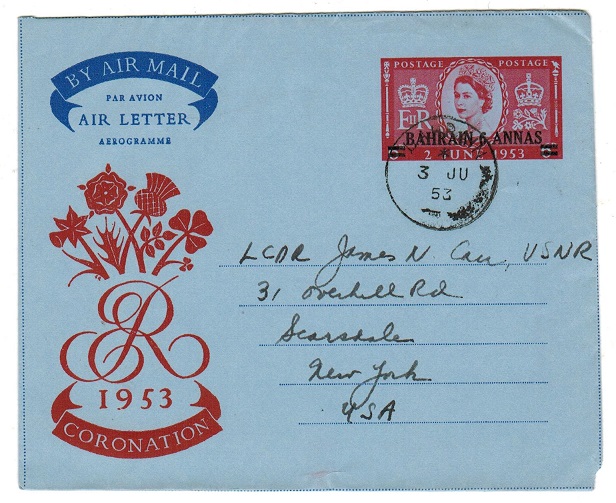 BY AIR MAIL
PAR AVION
AIR LETTER
AEROGRAMME
POSTAGE POSTAGE
E II R
BAHRAIN 6 ANNAS
2 JUNE 1953
3 JU
53
LCDR James N. Carr, USNR
31 Overhill Rd
Scarsdale
New York
USA
ER
1953
CORONATION